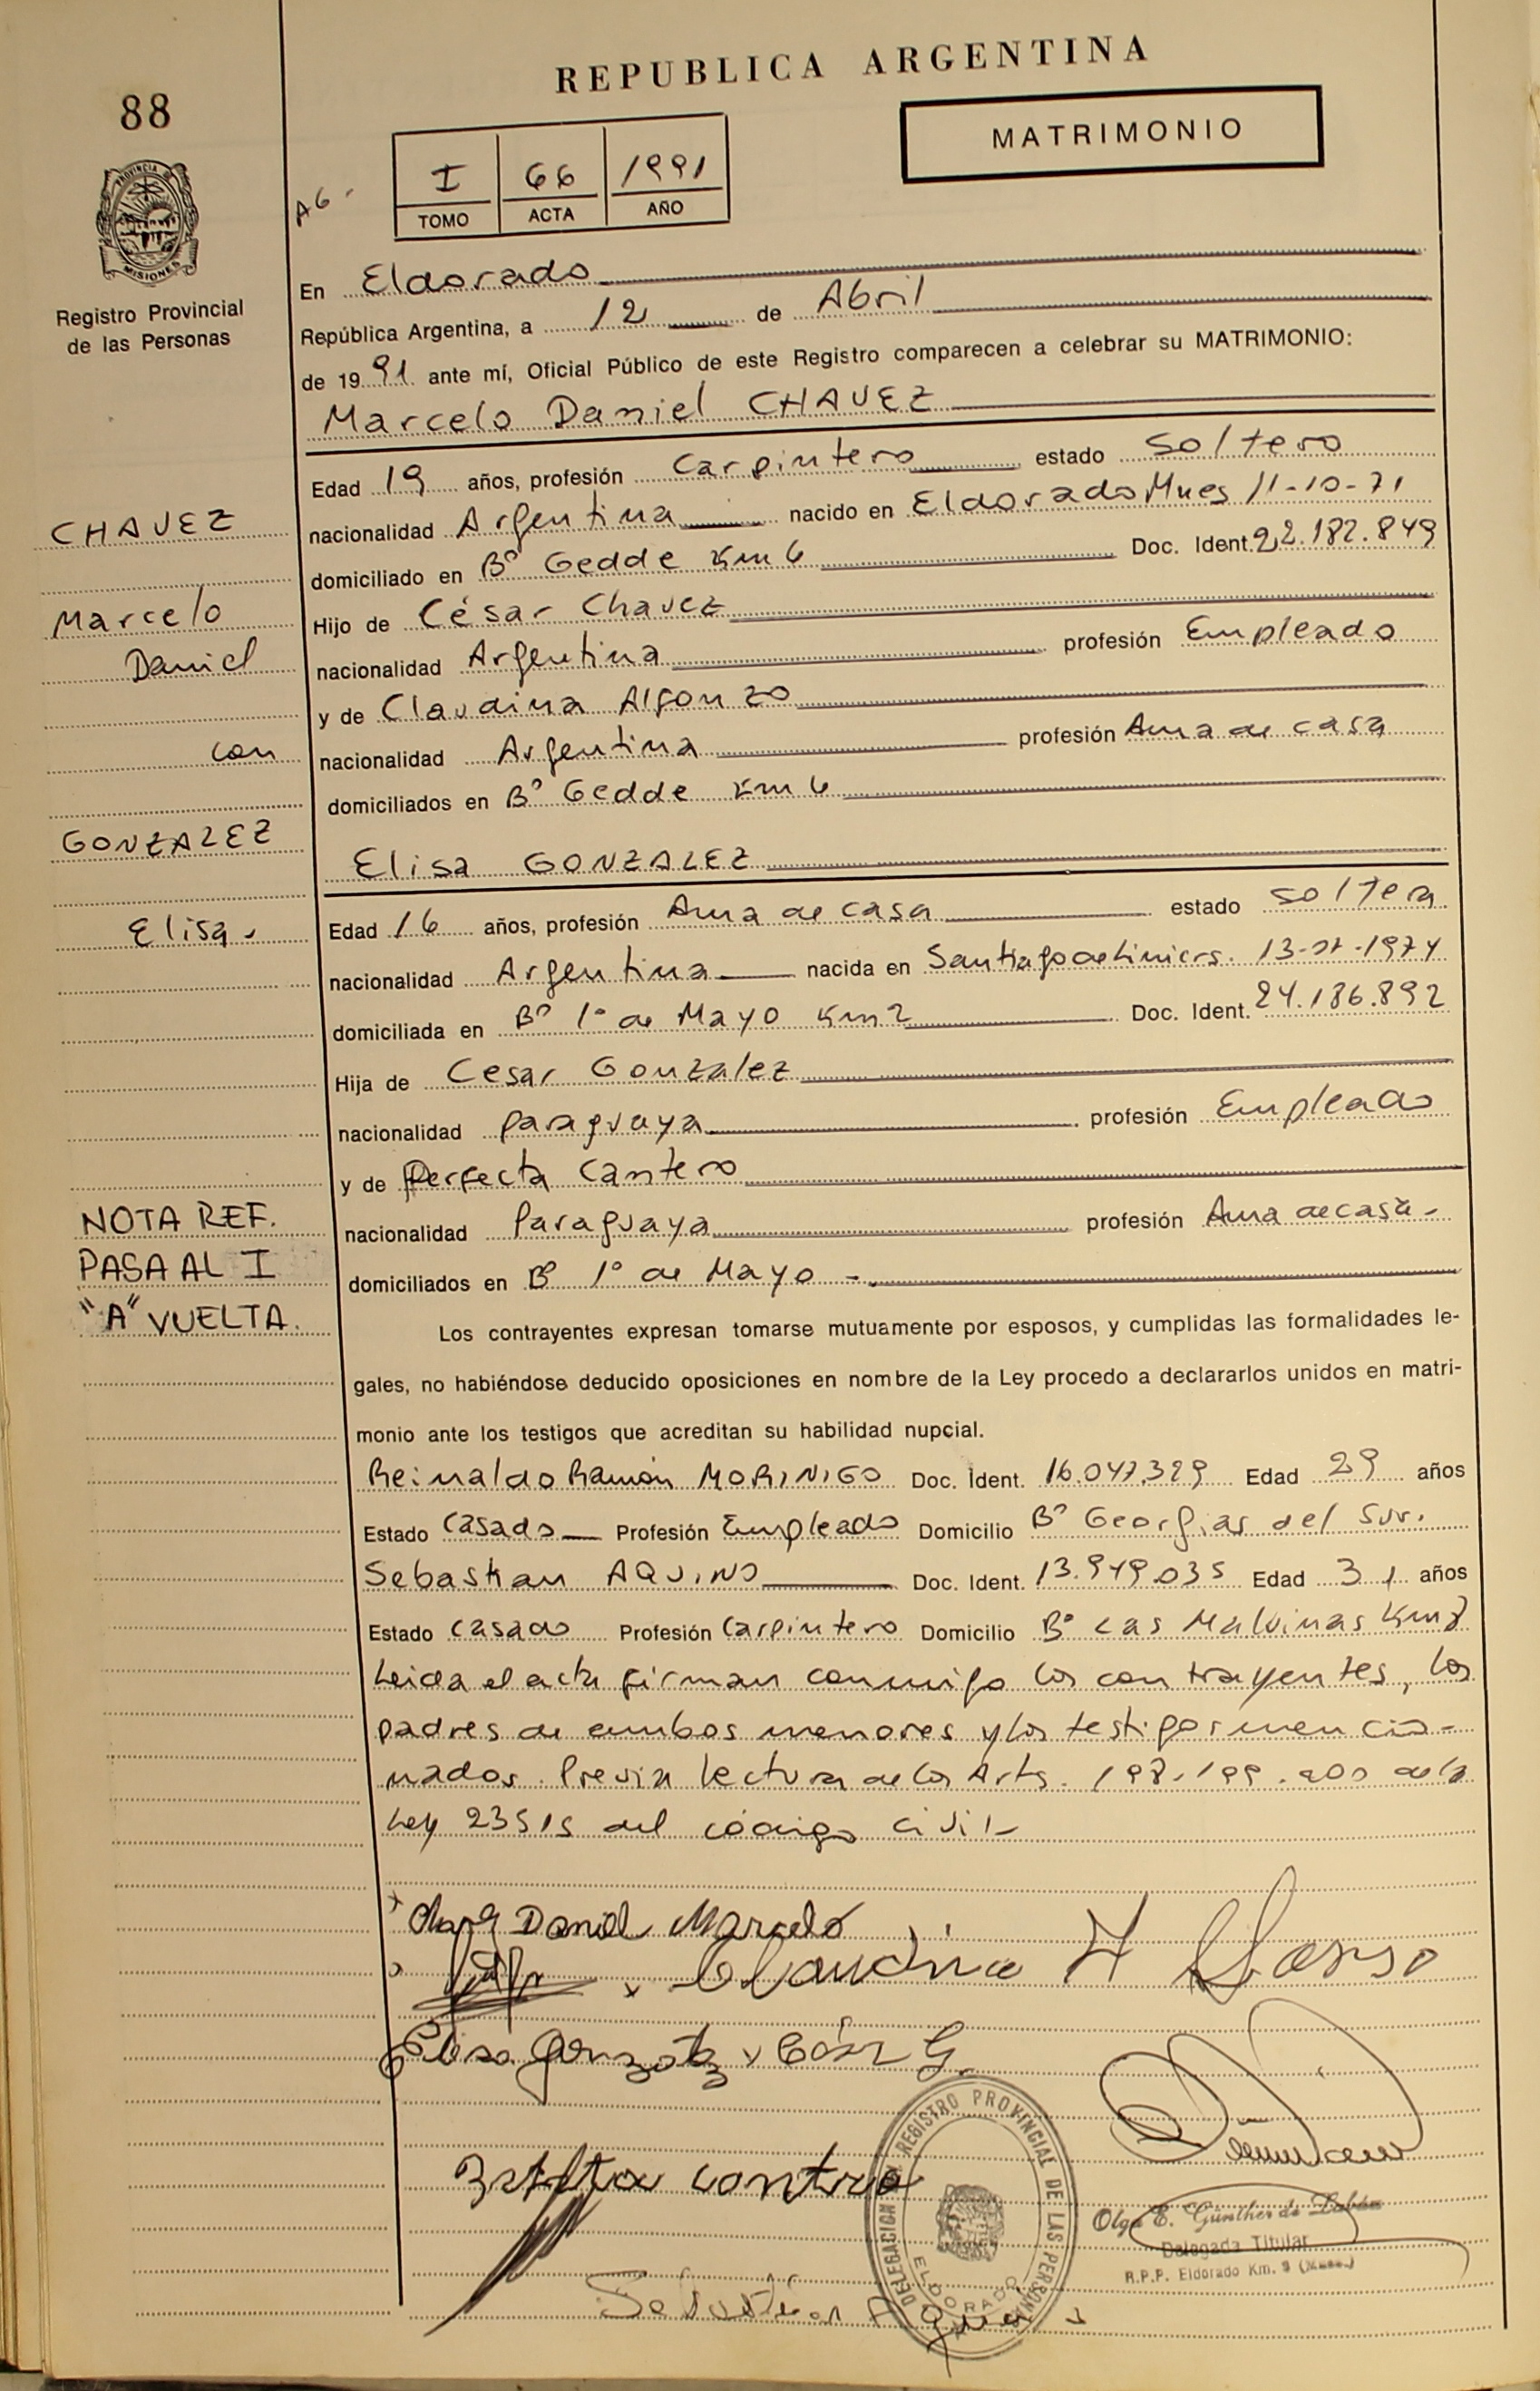 REPUBLICA ARGENTINA
88
MATRIMONIO
PROVINCIA DE
MISIONES
Registro Provincial
de las Personas
A6-
I 66 1991
TOMO ACTA AÑO
En Eldorado
República Argentina, a 12 de Abril
de 1991 ante mí, Oficial Público de este Registro comparecen a celebrar su MATRIMONIO:
Marcelo Daniel CHAVEZ
Edad 19 años, profesión Carpintero estado Soltero
nacionalidad Argentina nacido en Eldorado Mnes 11-10-71
domiciliado en Bº Gedde Km 6 Doc. Ident. 22.182.849
Hijo de César Chavez
nacionalidad Argentina profesión Empleado
y de Claudina Alfonzo
nacionalidad Argentina profesión Ama de casa
domiciliados en Bº Gedde Km 6
Elisa GONZALEZ
Edad 16 años, profesión Ama de casa estado soltera
nacionalidad Argentina nacida en Santiago de Liniers. 13-07-1974
domiciliada en Bº 1º de Mayo Km 2 Doc. Ident. 24.186.892
Hija de Cesar Gonzalez
nacionalidad paraguaya profesión Empleado
y de Perfecta Cantero
nacionalidad Paraguaya profesión Ama de casa-
domiciliados en Bº 1º de Mayo -.
CHAVEZ
Marcelo
Daniel
con
GONZALEZ
Elisa.
NOTA REF.
PASA AL I
"A" VUELTA.
Los contrayentes expresan tomarse mutuamente por esposos, y cumplidas las formalidades le-
gales, no habiéndose deducido oposiciones en nombre de la Ley procedo a declararlos unidos en matri-
monio ante los testigos que acreditan su habilidad nupcial.
Reinaldo Ramón MORINIGO Doc. Ident. 16.047.329 Edad 29 años
Estado Casado Profesión Empleado Domicilio Bº Georgias del Sur.
Sebastian AQUINO Doc. Ident. 13.949.035 Edad 31 años
Estado Casado Profesión Carpintero Domicilio Bº Las Malvinas Km
Leida el acta firman conmigo los contrayentes, los
padres de ambos menores y los testigos mencio-
nados. Previa lectura de los Arts. 198.199.200 de la
Ley 23515 del código civil-
Daniel Marcelo
x Claudina A
Elisa Gonzalez x César G.
DELEGACION REGISTRO PROVINCIAL DE LAS PERSONAS
ELDORADO
Olga E. Günther de
Delegada Titular
R.P.P. Eldorado Km. 9 (Mnes.)
Sebastian